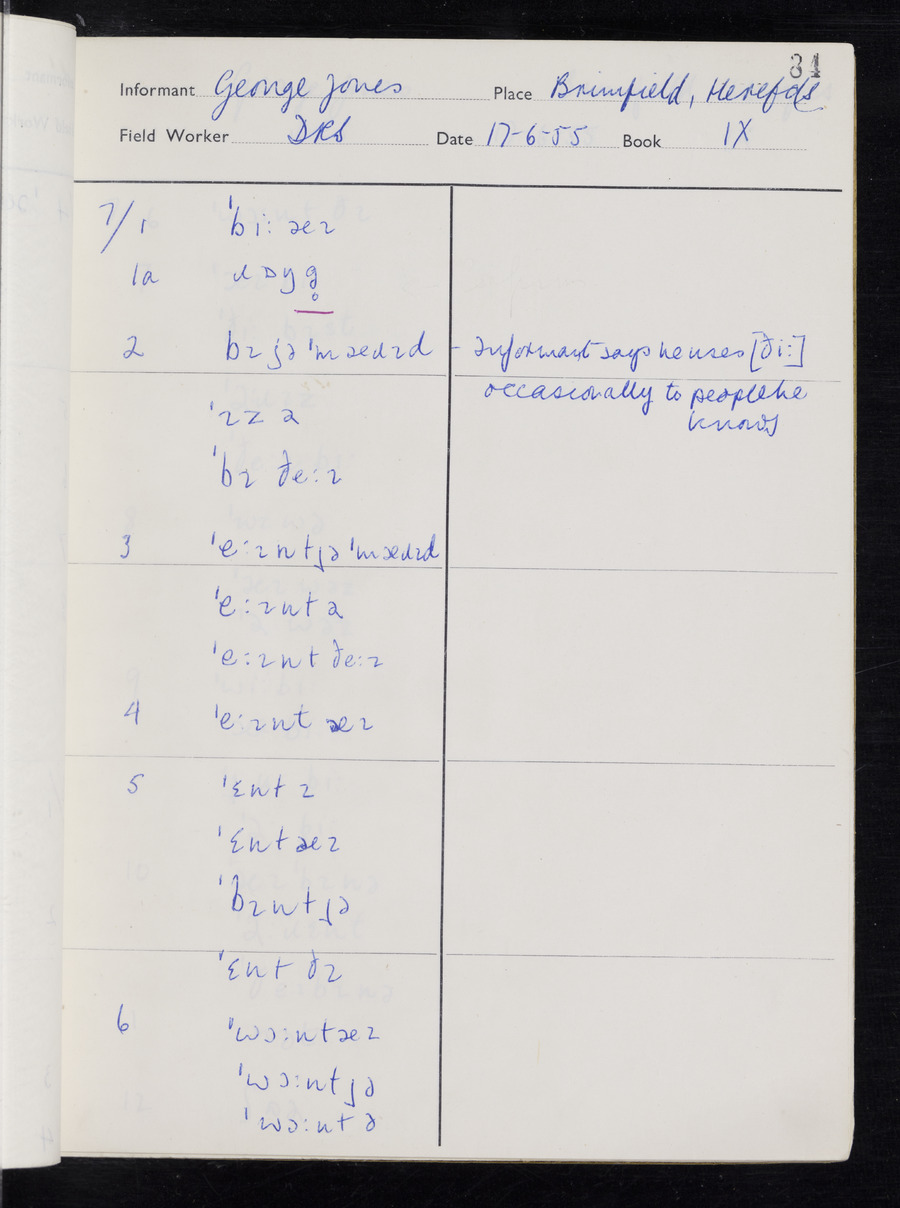 34
Informant George Jones Place Brimfield, Herefds
Field Worker DRS Date 17-6-55 Book IX
7/1 ˈbiː əɪ
1a
2 bɪ jə ˈməɪd – Informant says he uses [ðiː]
occasionally to people he
knows
ˈɪz ə
ˈbɪ ðeːɪ
3 ˈeːɪnt jə
ˈeːɪnt ə
ˈeːɪnt ðeːɪ
4 ˈeːɪnt əɪ
5 ˈɛnt ɪ
ˈɛnt əɪ
ˈbɪnt jə
ˈɛnt ðɪ
6 ˈwɔːnt əɪ
ˈwɔːnt jə
ˈwɔːnt ə